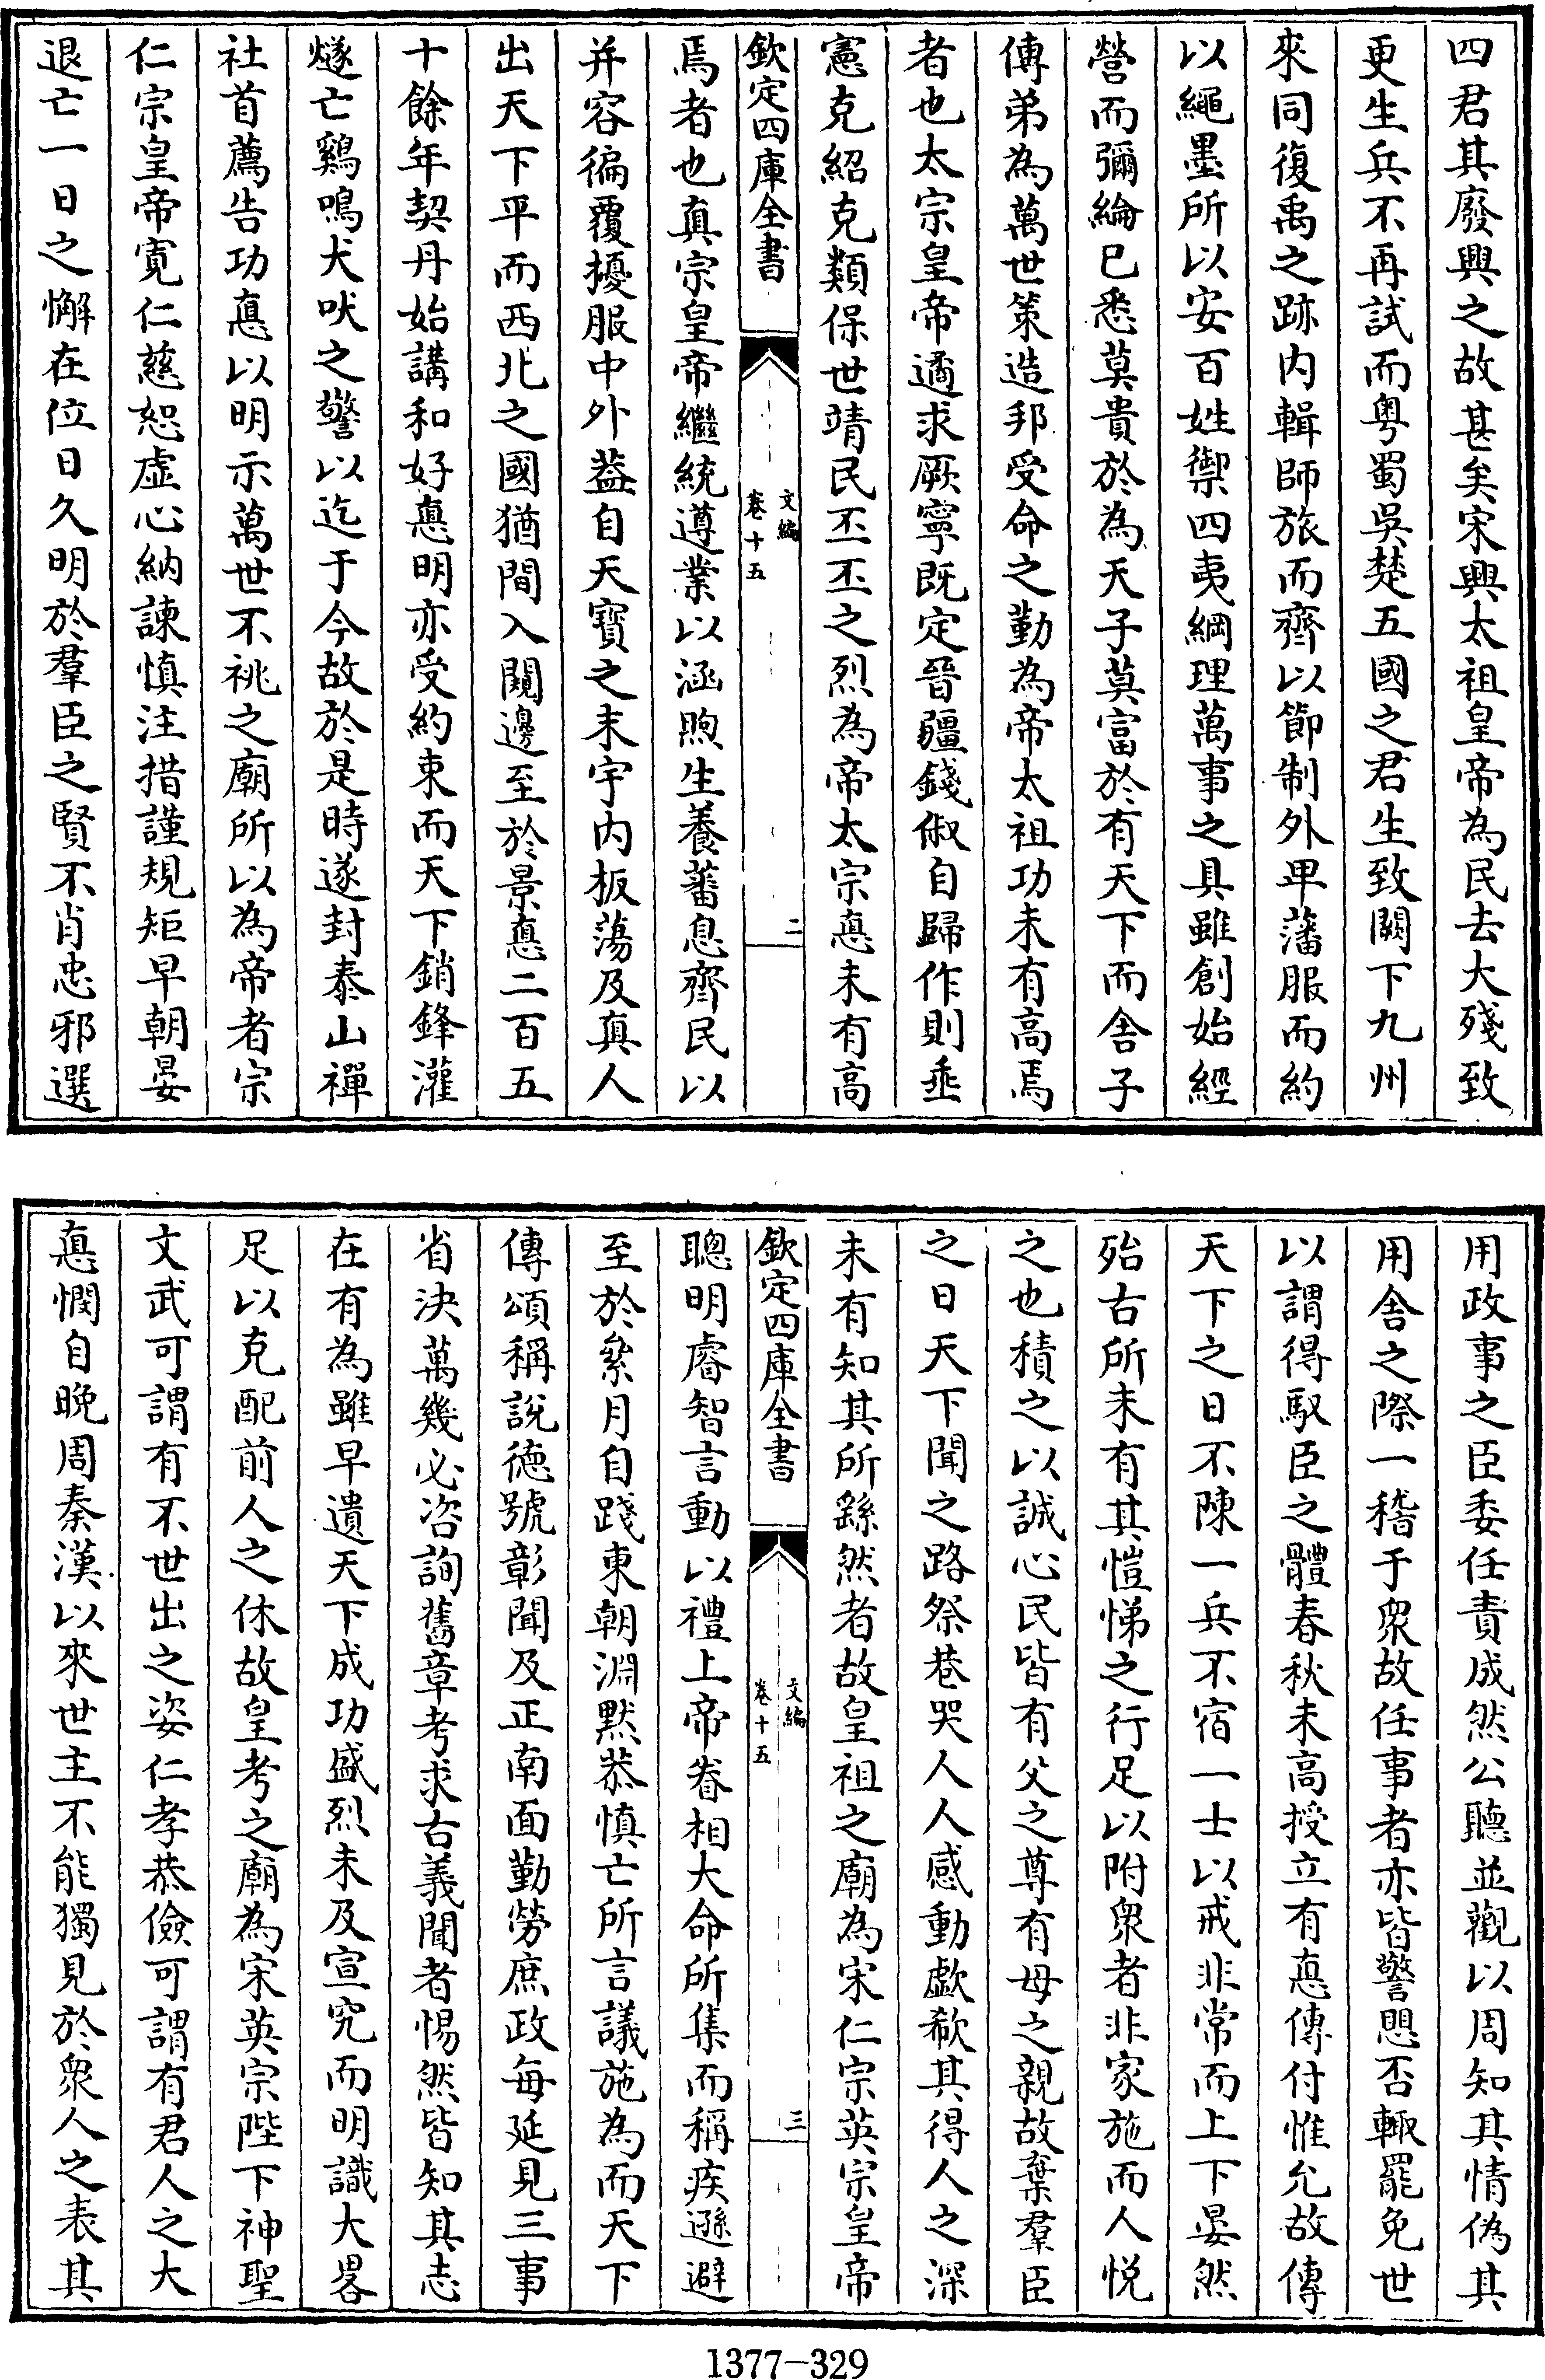 四君其廢興之故甚矣宋興太祖皇帝為民去大殘致
更生兵不再試而粤蜀吳楚五國之君生致闕下九州
來同復禹之跡内輯師旅而齊以節制外卑藩服而約
以繩墨所以安百姓禦四夷綱理萬事之具雖創始經
營而彌綸已悉莫貴於為天子莫富於有天下而舍子
傳弟為萬世策造邦受命之勤為帝太祖功未有高焉
者也太宗皇帝遹求厥寧既定晉疆錢俶自歸作則垂
憲克紹克類保世靖民丕丕之烈為帝太宗悳未有高
欽定四庫全書
文編
卷十五
二
焉者也真宗皇帝繼統遵業以涵煦生養蕃息齊民以
并容徧覆擾服中外葢自天寶之末宇内板蕩及真人
出天下平而西北之國猶間入闚邊至於景悳二百五
十餘年契丹始講和好悳明亦受約束而天下銷鋒灌
燧亡鷄鳴犬吠之警以迄于今故於是時遂封泰山禪
社首薦告功悳以明示萬世不祧之廟所以為帝者宗
仁宗皇帝寛仁慈恕虚心納諫慎注措謹規矩早朝晏
退亡一日之懈在位日久明於羣臣之賢不肖忠邪選
用政事之臣委任責成然公聽並觀以周知其情偽其
用舍之際一稽于衆故任事者亦皆警愳否輙罷免世
以謂得馭臣之體春秋未高授立有悳傳付惟允故傳
天下之日不陳一兵不宿一士以戒非常而上下晏然
殆古所未有其愷悌之行足以附衆者非家施而人悦
之也積之以誠心民皆有父之尊有母之親故棄羣臣
之日天下聞之路祭巷哭人人感動歔欷其得人之深
未有知其所繇然者故皇祖之廟為宋仁宗英宗皇帝
欽定四庫全書
文編
卷十五
三
聰明睿智言動以禮上帝眷相大命所集而稱疾遜避
至於絫月自踐東朝淵黙恭慎亡所言議施為而天下
傳頌稱説德號彰聞及正南面勤勞庶政每延見三事
省決萬幾必咨詢舊章考求古義聞者惕然皆知其志
在有為雖早遺天下成功盛烈未及宣究而明識大畧
足以克配前人之休故皇考之廟為宋英宗陛下神聖
文武可謂有不世出之姿仁孝恭儉可謂有君人之大
悳憫自晚周秦漢以來世主不能獨見於衆人之表其
1377-329